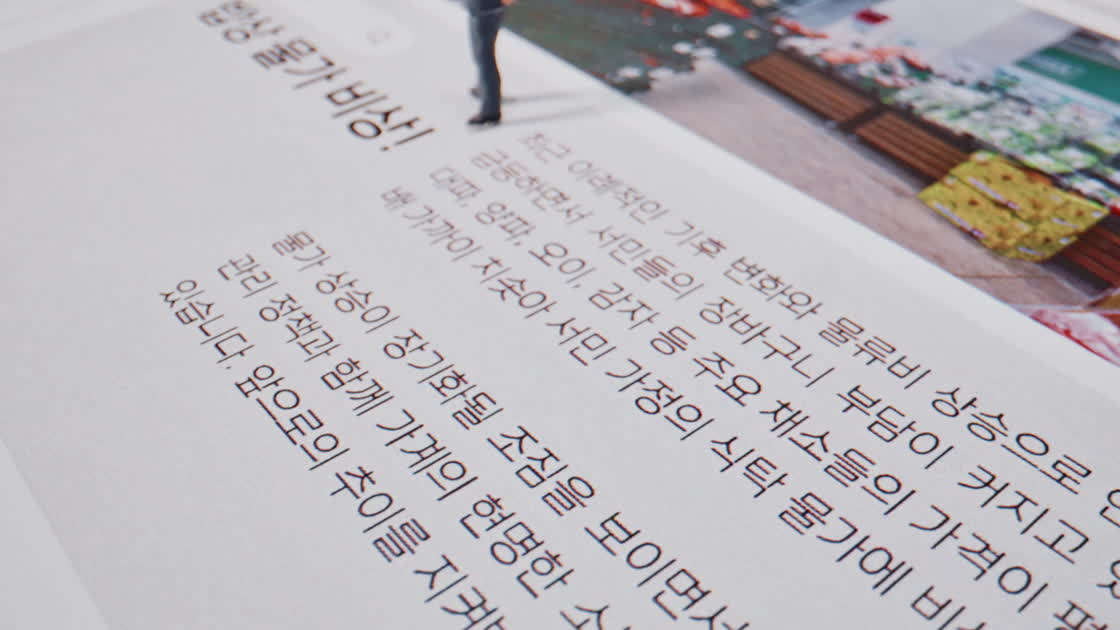 밥상 물가 비상!
최근 이례적인 기후 변화와 물류비 상승으로
급등하면서 서민들의 장바구니 부담이 커지고
대파, 양파, 오이, 감자 등 주요 채소들의 가격이
배 가까이 치솟아 서민 가정의 식탁 물가에
물가 상승이 장기화될 조짐을 보이면서
관리 정책과 함께 가계의 현명한
있습니다. 앞으로의 추이를